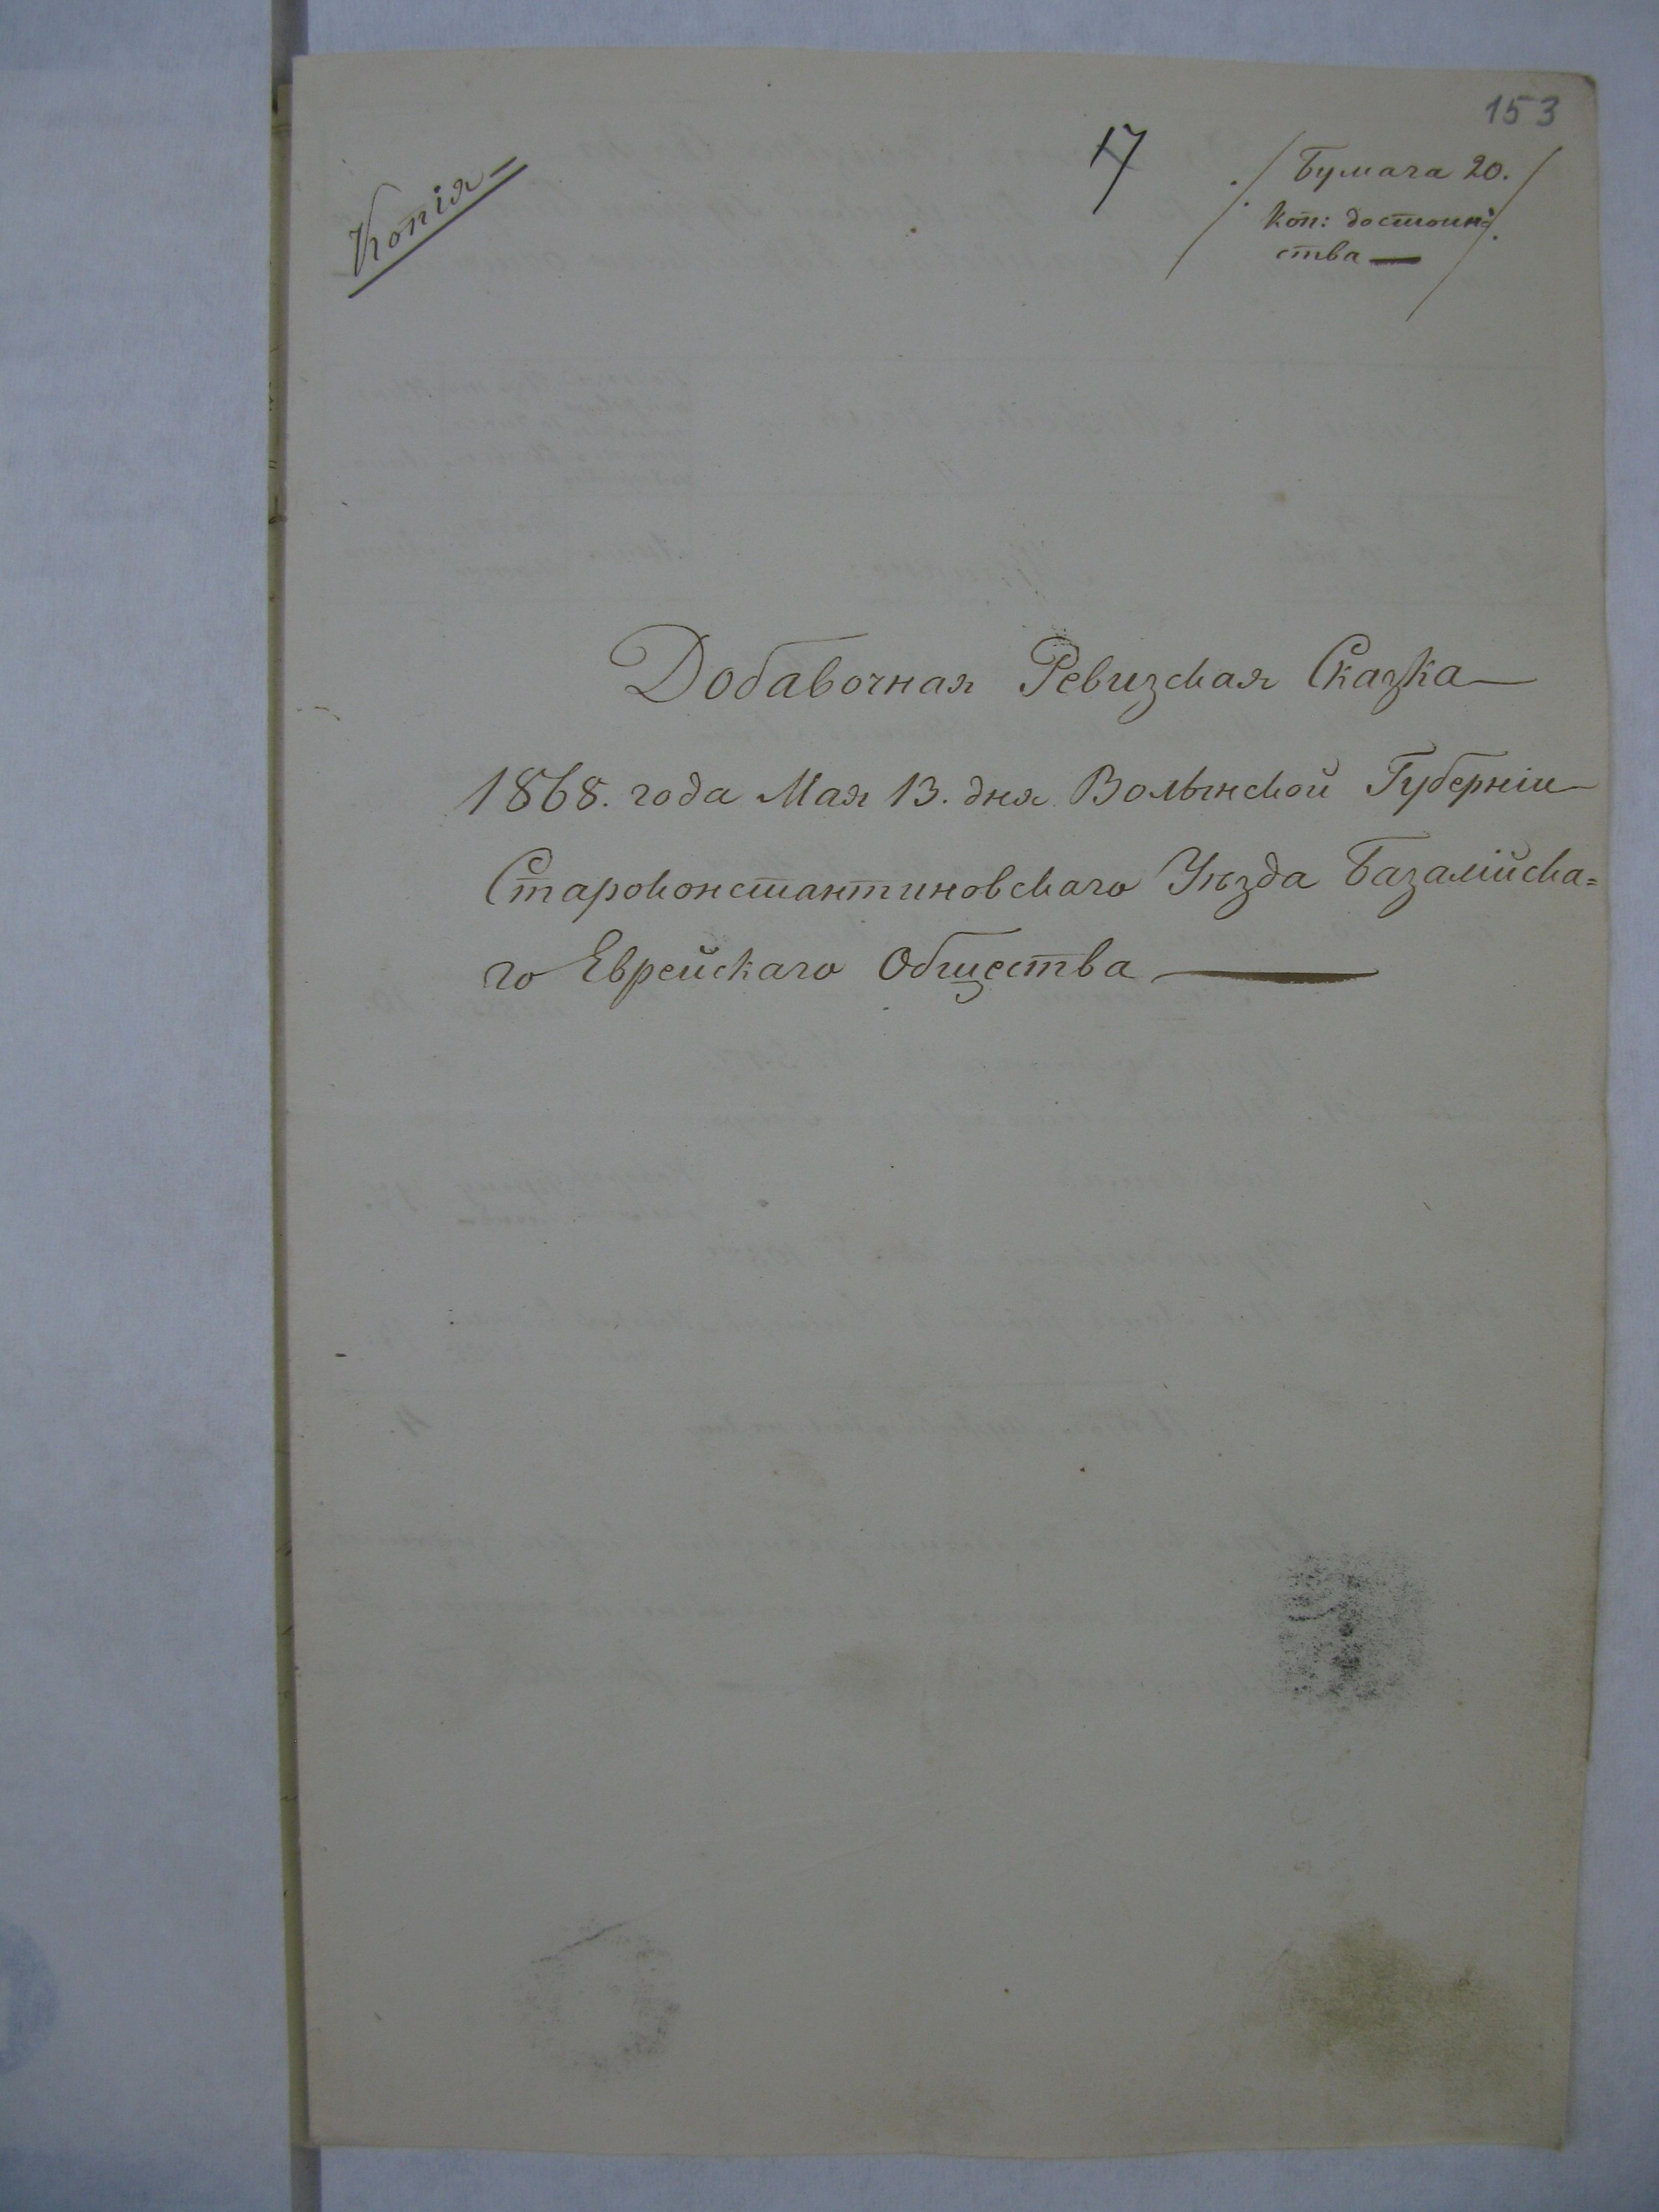 153
17
Копія
Бумага 20.
Коп: достоин=
ства
Добавочная Ревизская Сказка
1868. года Мая 13. дня Волынской Губерніи
Староконстантиновскаго Уѣзда Базалійска=
го Еврейскаго Общества